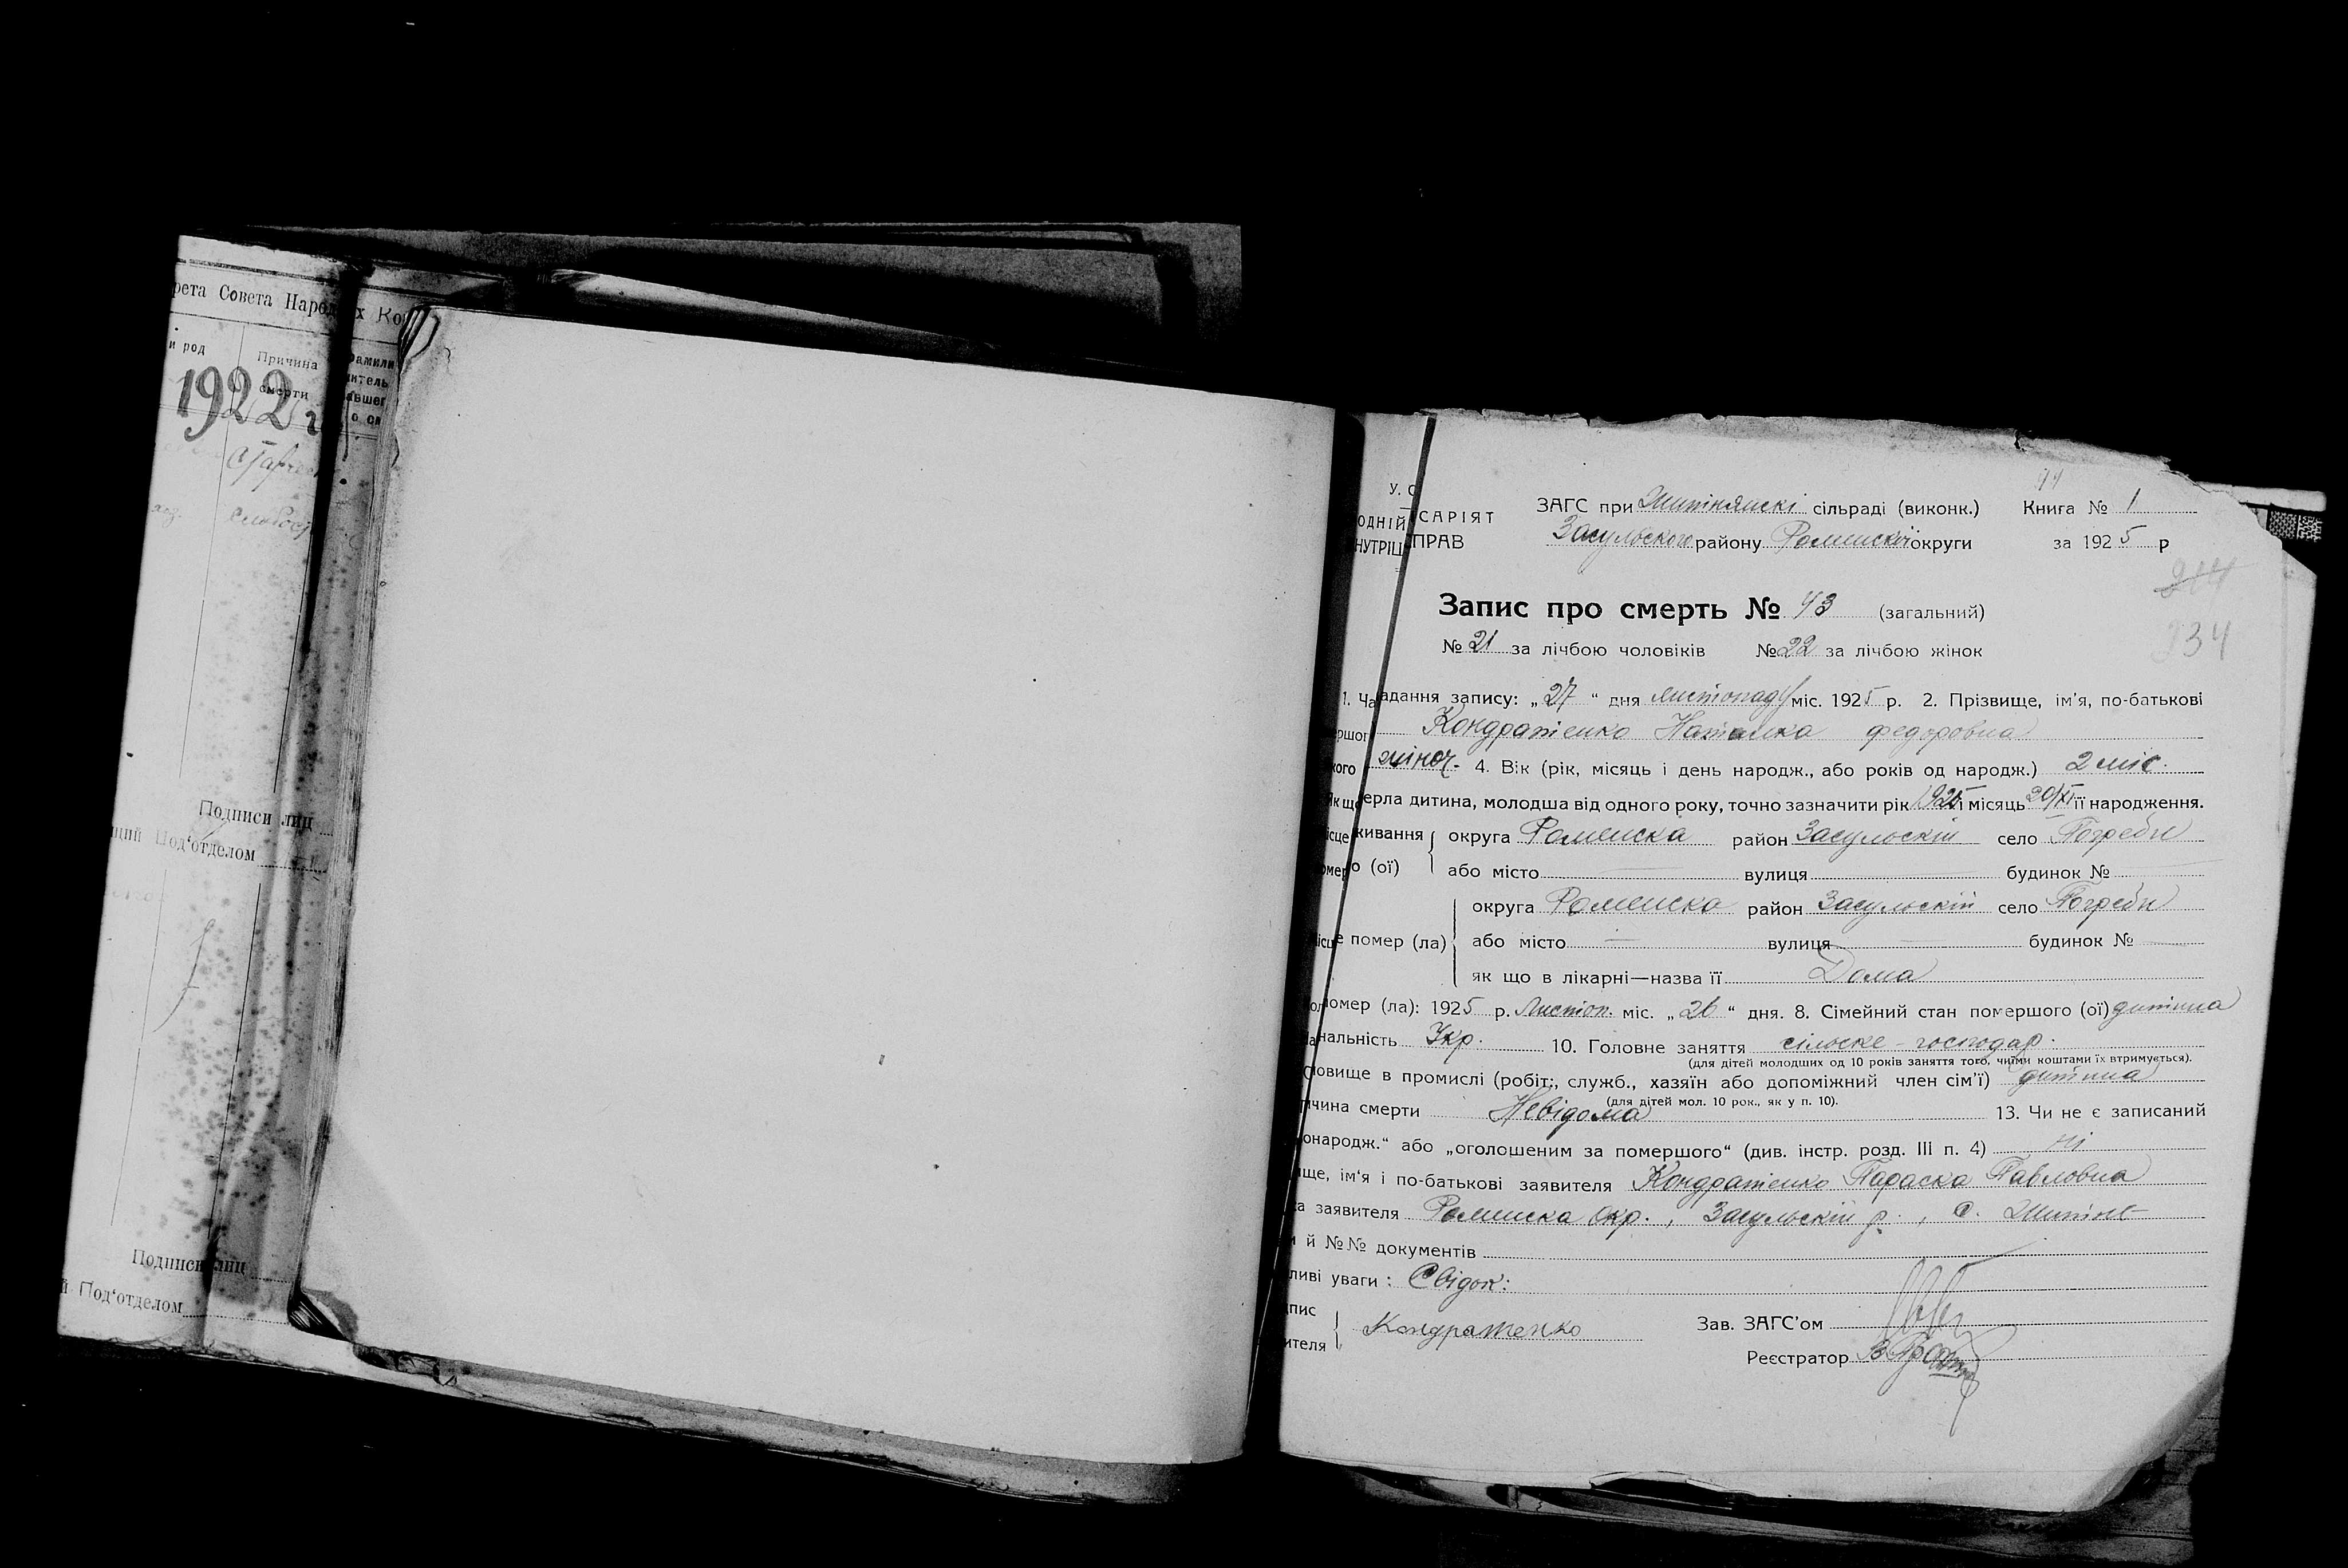 рета Совета Народ
х Ко
и род
Причина
смерти
1922 г
амили
итель
авшег
о см
слабост
Подписи лиц
щий Под‘отделом
Подписи лиц
й Под‘отделом
У. С
САРІЯТ
ОДНІЙ
НУТРІШ
ПРАВ
ЗАГС при сільраді (виконк.)
Книга № 1
Засульского району Роменскої округи
за 1925 р
314
934
Запис про смерть № 43 (загальний)
№ 21 за лічбою чоловіків № 22 за лічбою жінок
1. Ча адання запису: „27“ дня листопаду міс. 1925 р. 2. Прізвище, ім'я, по-батькові
ершог Кондратенко Наталка федоровна
кого жіноч. 4. Вік (рік, місяць і день народж., або років од народж.) 2 міс.
Як що ерла дитина, молодша від одного року, точно зазначити рік 1925 місяць її народження.
ісце живання округа Роменска район Засульский село Погреби
омер о (ої) або місто — вулиця — будинок № —
округа Роменска район Засульский село Погреби
ісце помер (ла) або місто — вулиця — будинок № —
як що в лікарні—назва її Дома
помер (ла): 1925 р. Листоп. міс. „26“ дня. 8. Сімейний стан померщого (ої) дитина
нальність Укр. 10. Головне заняття сільске-господар.
(для дітей молодших од 10 років заняття того, чиїми коштами їх втримується).
овище в промислі (робіт., служб., хазяїн або допоміжний член сім'ї) дитина
(для дітей мол. 10 рок., як у п. 10).
ичина смерти Невідома 13. Чи не є записаний
онародж.“ або „оголошеним за померщого“ (див. інстр. розд. III п. 4) ні
ище, ім'я і по-батькові заявителя Кондратенко Параска Павловна
са заявителя Роменска окр., Засульский р., с.
и й №№ документів
ливі уваги: Свідок:
пис
ителя Кондратенко
Зав. ЗАГС'ом
Реєстратор